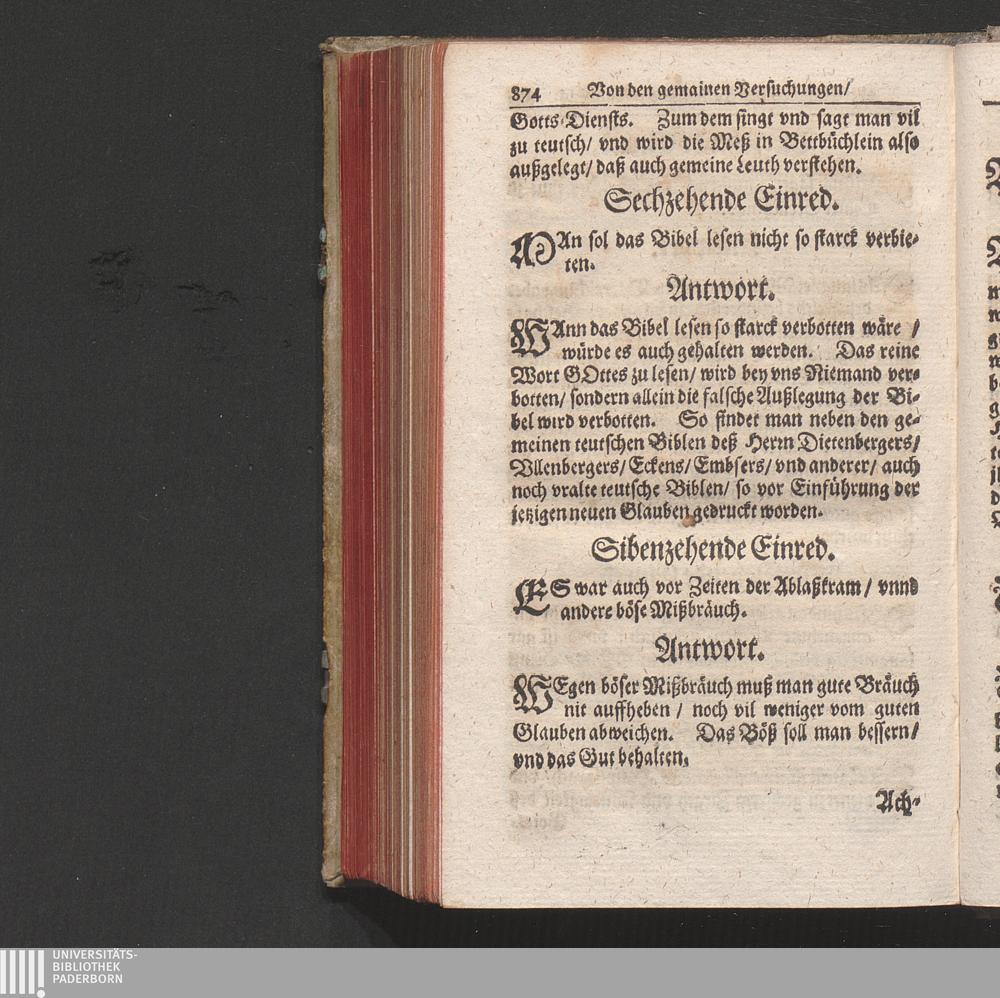 874 Von den gemainen Versuchungen/
Gotts-Diensts. Zum dem singt vnd sagt man vil
zu teutsch/ vnd wird die Meß in Bettbüchlein also
außgelegt/ daß auch gemeine Leuth verstehen.
Sechzehende Einred.
MAn sol das Bibel lesen nicht so starck verbie-
ten.
Antwort.
WAnn das Bibel lesen so starck verbotten wäre /
würde es auch gehalten werden. Das reine
Wort GOttes zu lesen/ wird bey vns Niemand ver-
botten/ sondern allein die falsche Außlegung der Bi-
bel wird verbotten. So findet man neben den ge-
meinen teutschen Biblen deß Herrn Dietenbergers/
Vllenbergers/ Eckens/ Embsers/ vnd anderer/ auch
noch vralte teutsche Biblen/ so vor Einführung der
jetzigen neuen Glauben gedruckt worden.
Sibenzehende Einred.
ES war auch vor Zeiten der Ablaßkram / vnnd
andere böse Mißbräuch.
Antwort.
WEgen böser Mißbräuch muß man gute Bräuch
nit auffheben / noch vil weniger vom guten
Glauben abweichen. Das Böß soll man bessern/
vnd das Gut behalten.
Ach-
UNIVERSITÄTS-
BIBLIOTHEK
PADERBORN